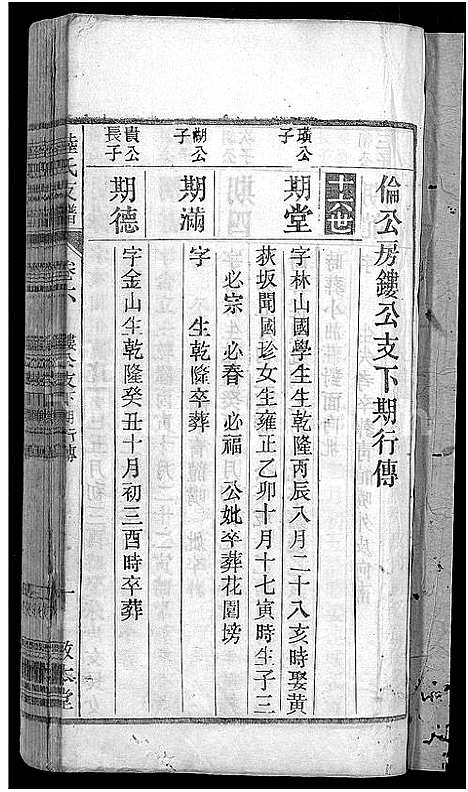 倫公房鏤公支下期行傳
十六世
璜公子
期堂
字林山國學生生乾隆丙辰八月二十八亥時娶黃
荻坂聞國珍女生雍正乙卯十月十七寅時生子三
必宗 必春 必福 公妣卒葬花園塝
湖公子
期滿
字 生乾隆卒葬
貴公長子
期德
字金山生乾隆癸丑十月初三酉時卒葬
陸氏支譜
卷六
鏤公支下期行傳
一
敬本堂